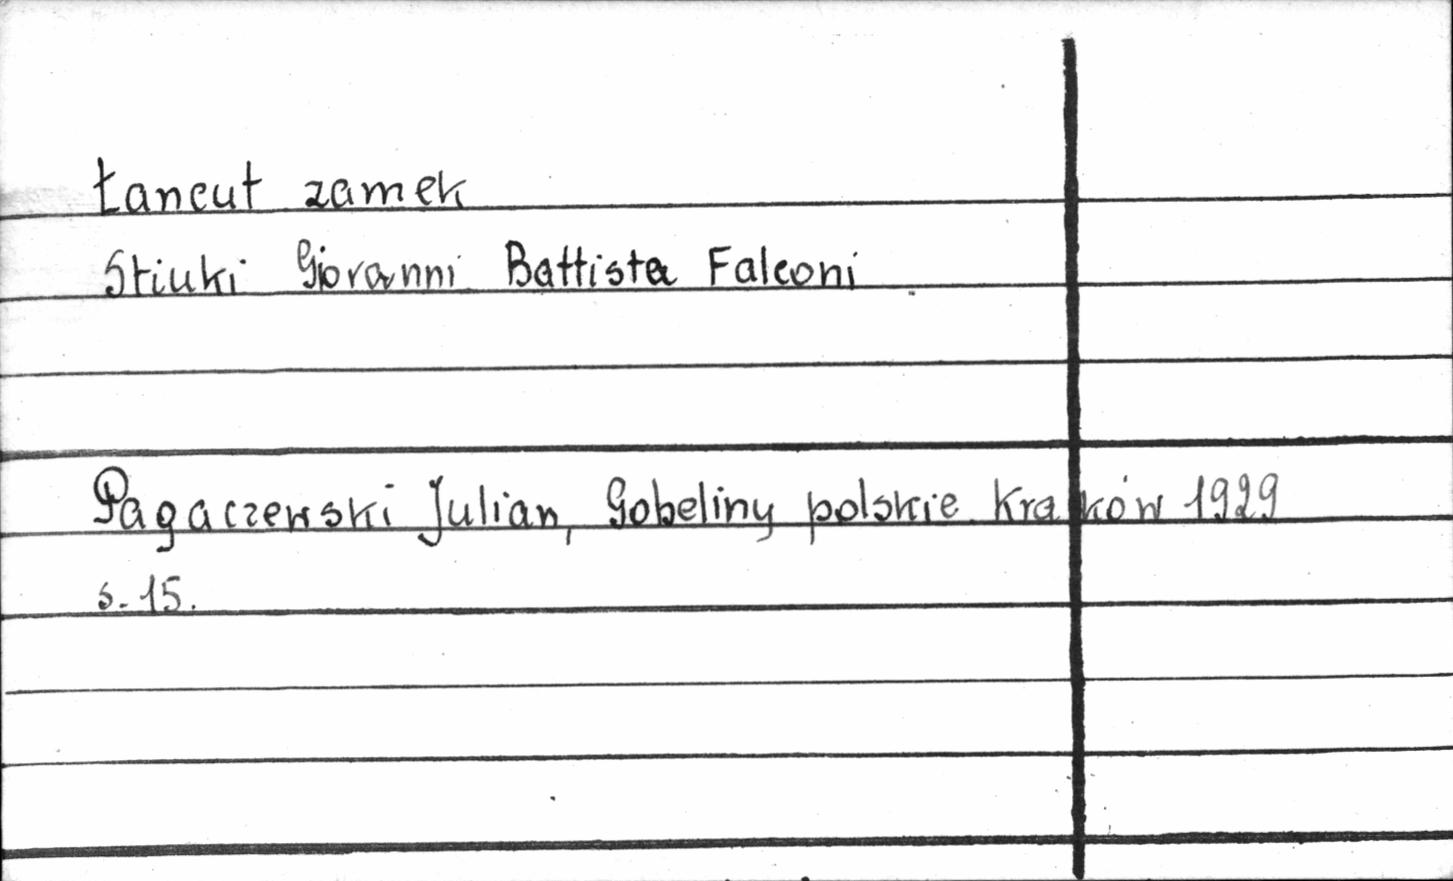 Łancut zamek
Stiuki Giovanni Battista Falconi
Pagaczewski Julian, Gobeliny polskie Kraków 1929
s. 15.